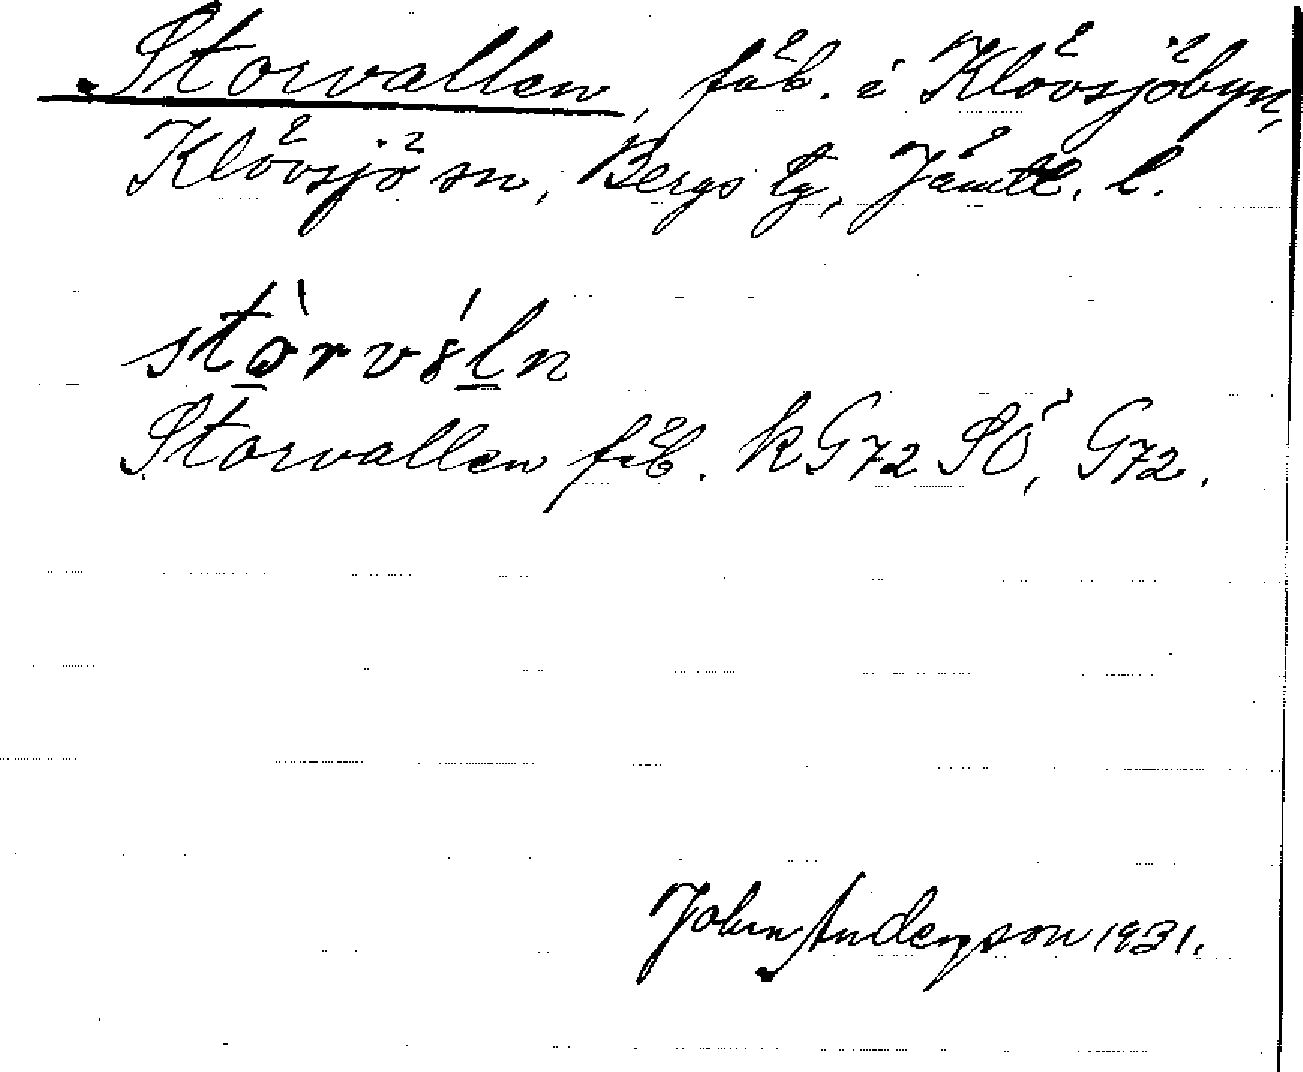 Storvallen, fäb. i Klövsjöbyn,
Klövsjö sn, Bergs tg, Jämtl. l.
stòrvál̲n
Storvallen fäb. kG72 SÖ, G72.
John Anderson 1931.